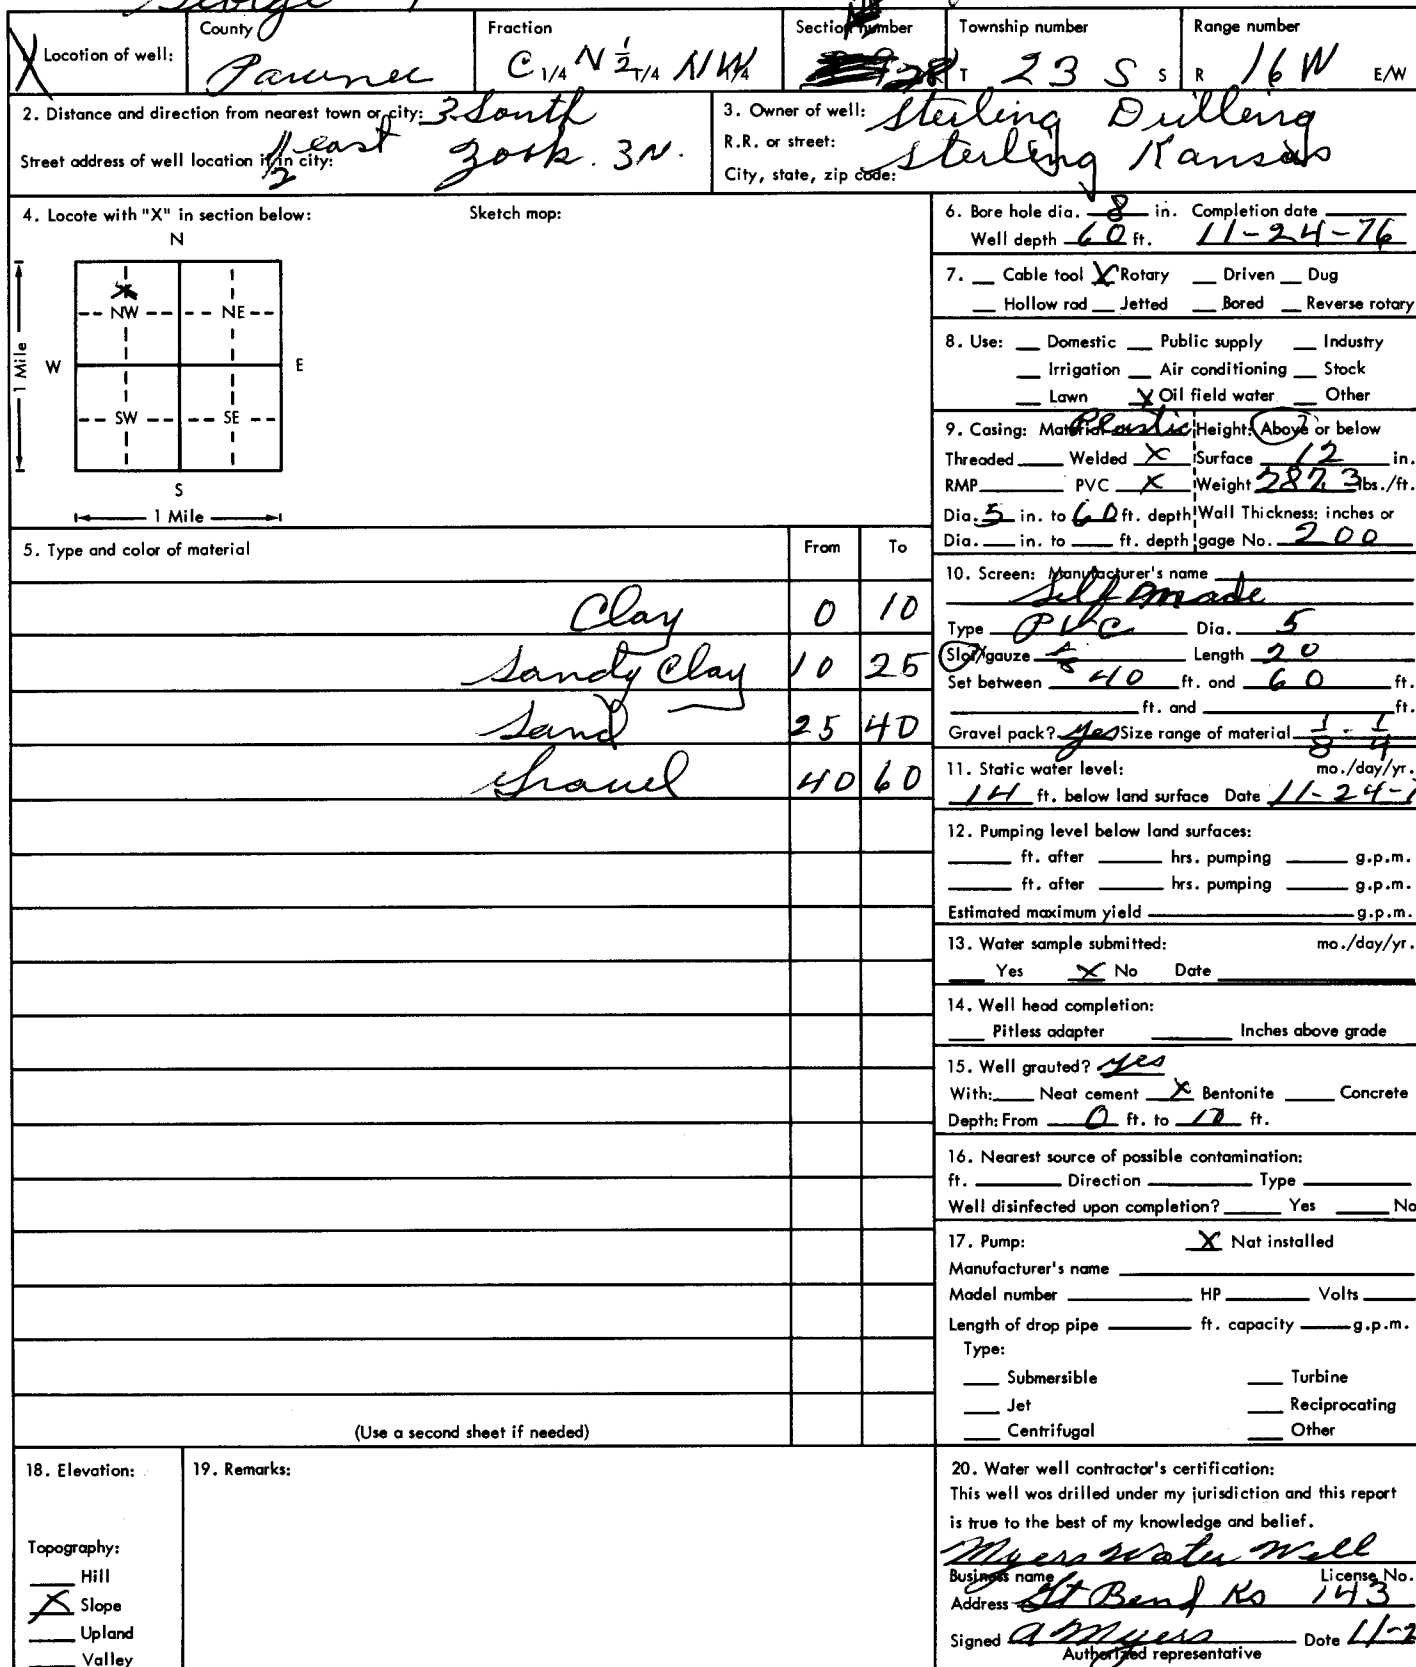 George
Location of well: County Fraction Section number Township number Range number
Pawnee C 1/4 N 1/2 1/4 NW 1/4 28 T 23 S S R 16 W E/W
2. Distance and direction from nearest town or city: 3 South
1/2 east Zook. 3N.
Street address of well location if in city:
3. Owner of well: Sterling Drilling
R.R. or street:
City, state, zip code: Sterling Kansas
4. Locote with "X" in section below: Sketch mop:
N
NW NE
W E
1 Mile
SW SE
S
1 Mile
5. Type and color of material From To
Clay 0 10
Sandy Clay 10 25
Sand 25 40
Gravel 40 60
(Use a second sheet if needed)
6. Bore hole dia. 8 in. Completion date
Well depth 60 ft. 11-24-76
7. Cable tool X Rotary Driven Dug
Hollow rad Jetted Bored Reverse rotary
8. Use: Domestic Public supply Industry
Irrigation Air conditioning Stock
Lawn X Oil field water Other
9. Casing: Material Plastic Height: Above or below
Threaded Welded X Surface 12 in.
RMP PVC X Weight 287.3 lbs./ft.
Dia. 5 in. to 60 ft. depth Wall Thickness: inches or
Dia. in. to ft. depth gage No. 200
10. Screen: Manufacturer's name
Self made
Type PVC Dia. 5
Slot/gauze Length 20
Set between 40 ft. and 60 ft.
ft. and ft.
Gravel pack? yes Size range of material 1/8 - 1/4
11. Static water level: mo./day/yr.
14 ft. below land surface Date 11-24-7
12. Pumping level below land surfaces:
ft. after hrs. pumping g.p.m.
ft. after hrs. pumping g.p.m.
Estimated maximum yield g.p.m.
13. Water sample submitted: mo./day/yr.
Yes X No Date
14. Well head completion:
Pitless adapter Inches above grade
15. Well grauted? yes
With: Neat cement X Bentonite Concrete
Depth: From 0 ft. to 10 ft.
16. Nearest source of possible contamination:
ft. Direction Type
Well disinfected upon completion? Yes No
17. Pump: X Nat installed
Manufacturer's name
Madel number HP Volts
Length of drop pipe ft. capacity g.p.m.
Type:
Submersible Turbine
Jet Reciprocating
Centrifugal Other
18. Elevation:
Topography:
Hill
X Slope
Upland
Valley
19. Remarks:
20. Water well contractor's certification:
This well wos drilled under my jurisdiction and this report
is true to the best of my knowledge and belief.
Myers Water Well
Business name License No.
Address Gt Bend Ks 143
Signed A Myers Date 11-2
Authorized representative